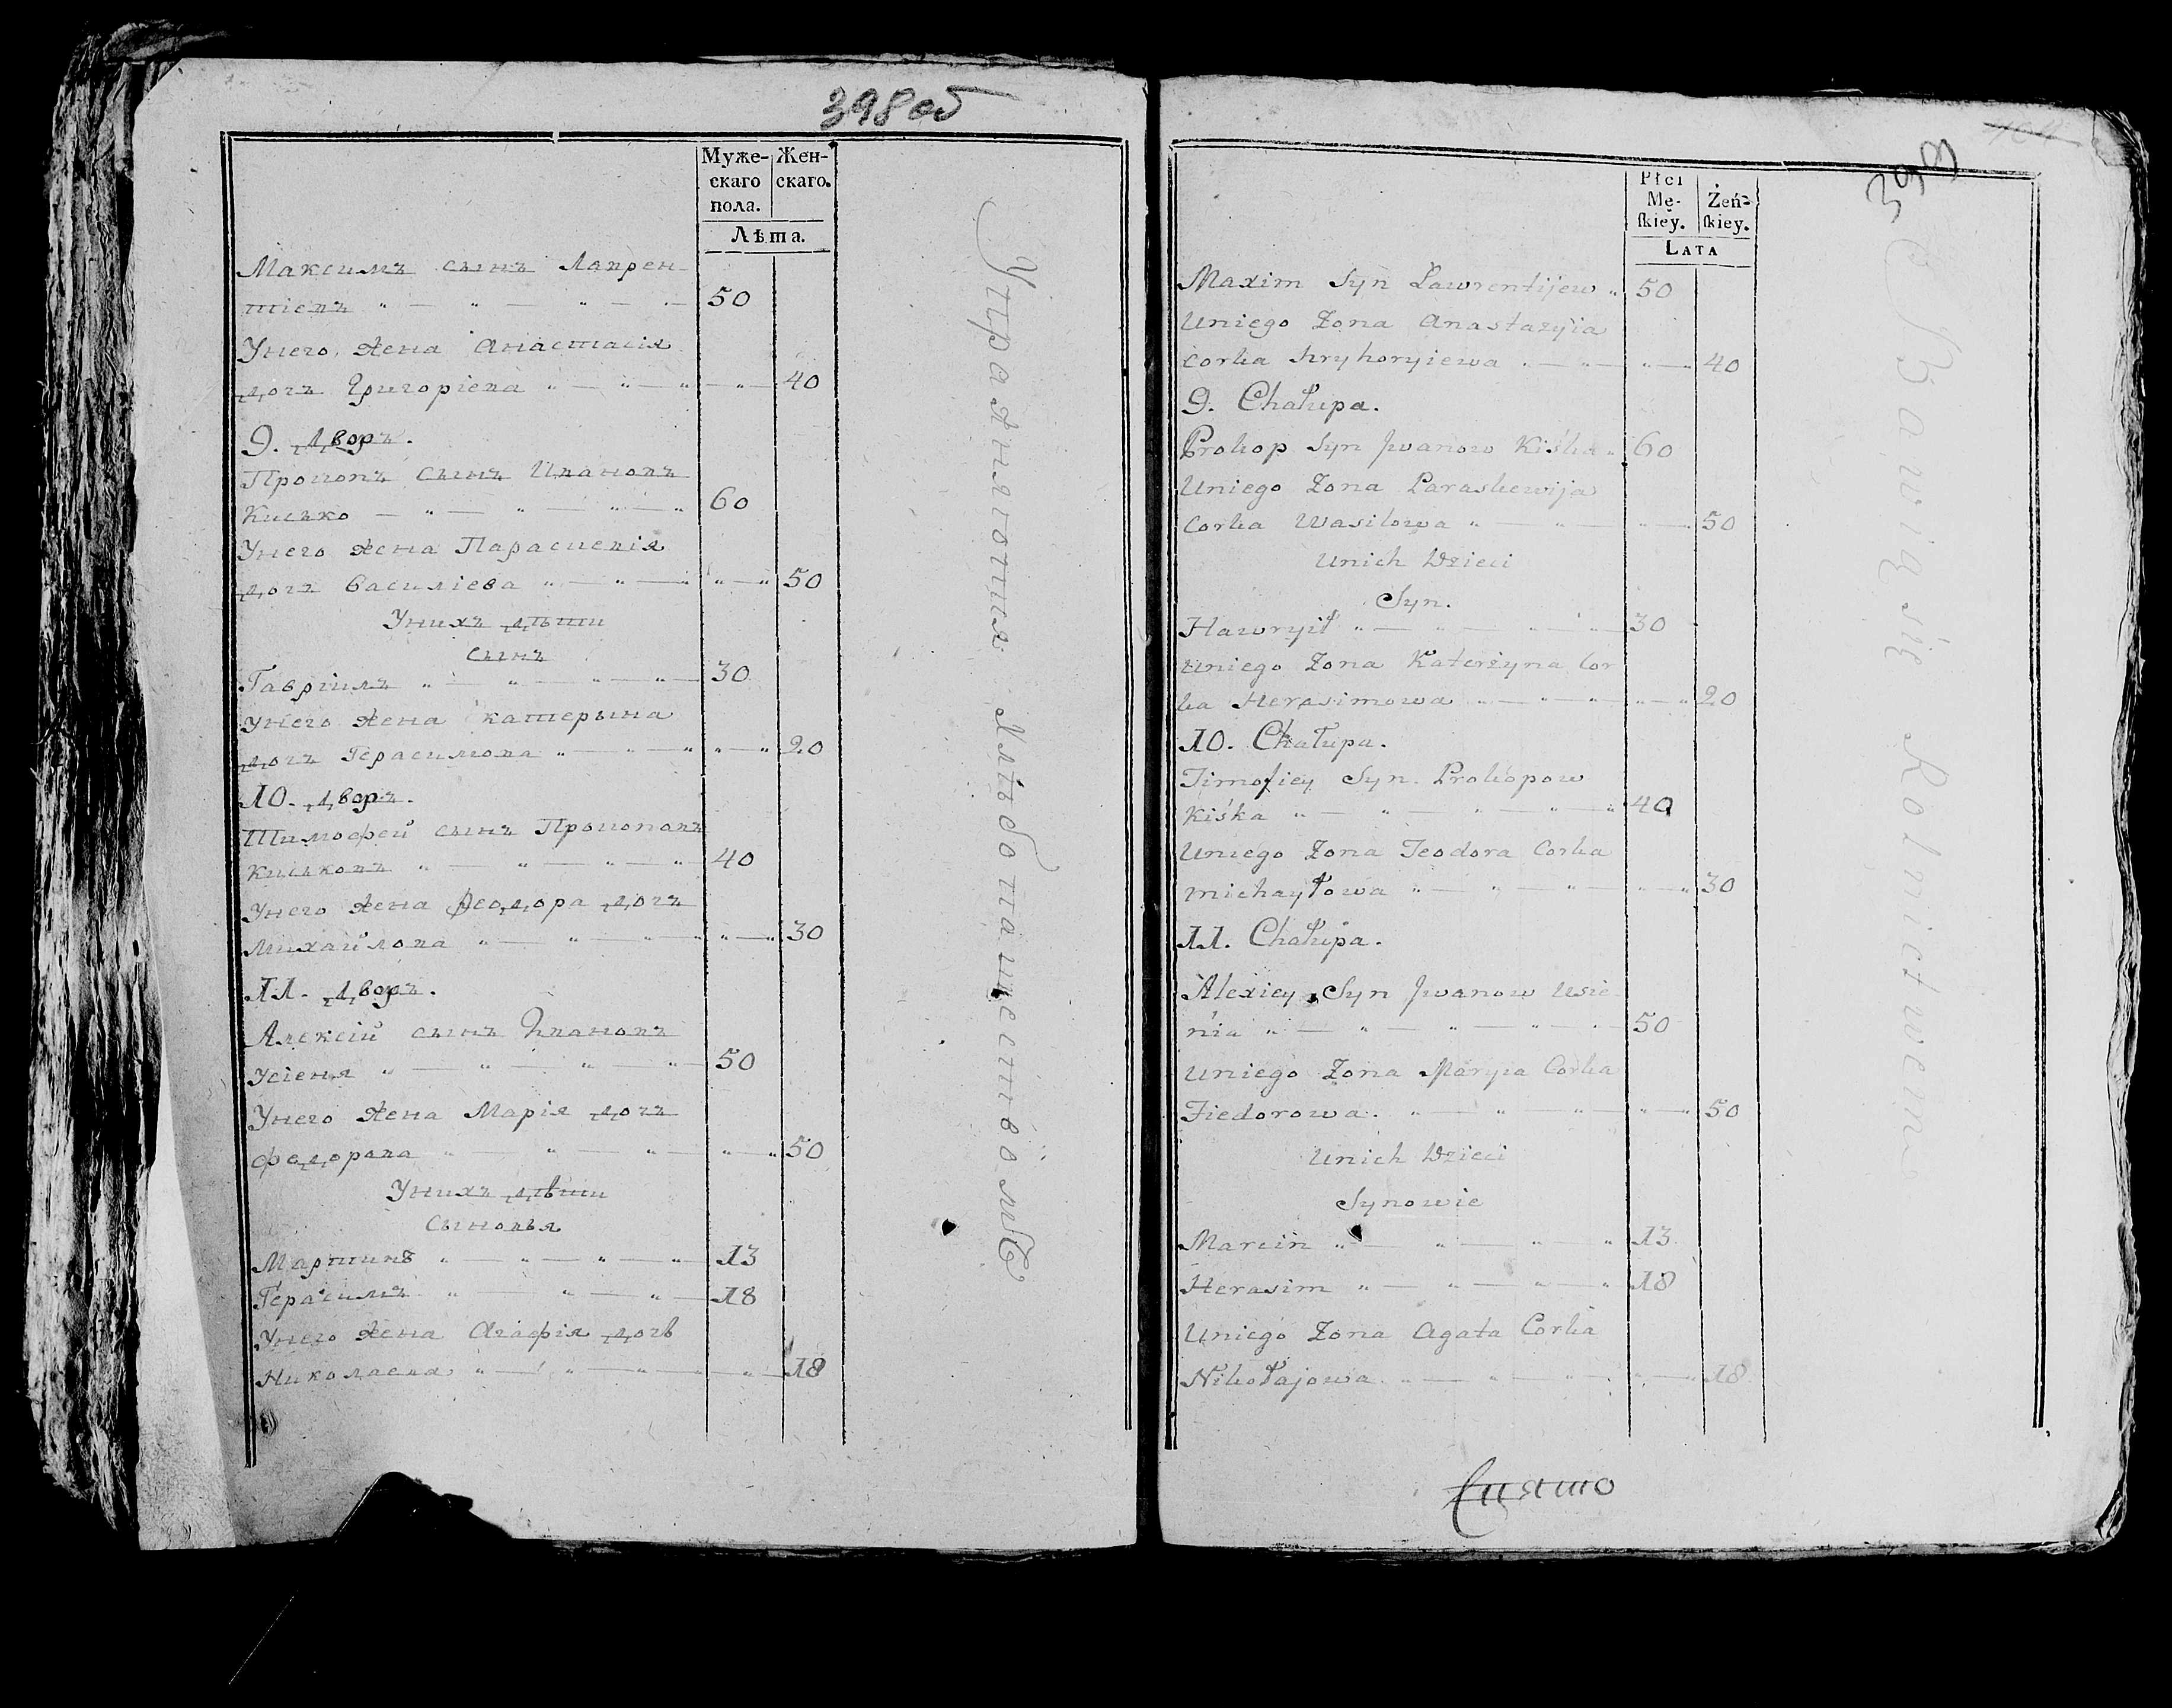 398 об
Муже-
скаго
пола.
Жен-
скаго.
Лѣта.
Максимъ сынъ Лаврен
тіевъ " — " — " — " — 50
Унего жена Анастасія
дочъ Григоріева " — " — " — " — 40
9. Дворъ.
Прокопъ сынъ Ивановъ
Кисько — " — " — " — " 60
Унего жена Параскевія
дочъ Василіева " — " — " " — " 50
Унихъ дѣти
сынъ
Гавріилъ " — " — " — " — 30
Унего жена Катерына
дочъ Герасимова " — " — " " — " 20
10. Дворъ.
Тимофей сынъ Прокоповъ
Киськовъ " — " — " — " 40
Унего жена Феодора дочъ
Михайлова " — " — " " — " 30
11. Дворъ.
Алексій сынъ Ивановъ
Усіеня " — " — " — " 50
Унего жена Марія дочъ
Федорава " — " — " — " — " 50
Унихъ дѣти
сыновья
Мартинъ " — " — " — " — 13
Герасимъ " — " — " — 18
Унего жена Агафія дочь
Николаева " — " — " — " — 18
Упражняютися Хлѣбопашествомъ
399
Płci
Mę-
ſkiey.
Żeń-
ſkiey.
LATA
Maxim Syn Ławrentijew " 50
Uniego Żona Anastazyia
Corka Hryhoryiewa " — " — " — 40
9. Chałupa.
Prokop Syn Jwanow Kiśka " 60
Uniego Żona Paraskewija
Corka Wasilowa " — " — " — 50
Unich Dzieci
Syn.
Hawrył " — " — " — " — 30
Uniego Żona Katerżyna Cor
ka Herasimowa " — " — " " — " 20
10. Chałupa.
Timofiey Syn Prokopow
Kiśka " — " — " — " — " 40
Uniego Żona Teodora Corka
Michayłowa " — " — " — " — " 30
11. Chałupa.
Alexiey Syn Jwanow Usie
nia " — " — " — " — 50
Uniego Żona Maryia Corka
Fiedorowa. " — " — " — " — " 50
Unich Dzieci
Synowie
Marcin " — " — " — " 13
Herasim " — " — " — " 18
Uniego Żona Agata Corka
Nikołajowa " — " — " — " — " 18
Bawiąsię Rolnictwem